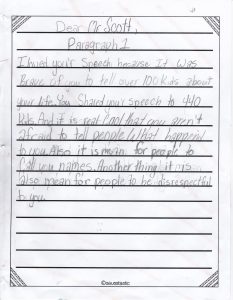 Dear Mr Scott,
Paragraph 1
I loved your speech because It was
Brave of you to tell over 100 kids about
your life. You Shared your speech to 440
kids. And it is real Cool that you aren't
afraid to tell people What happend
to you. Also it is mean for people to
Call you names. Another thing it is
also mean for people to be disrespectful
to you.